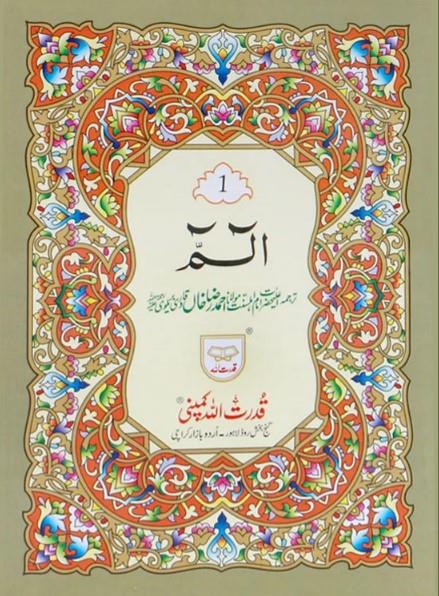 1
الٓمّٓ
ترجمہ اعلیٰحضرت امام اہلسنت مولانا احمد رضا خاں قادری بریلوی
®
قدرت اللہ
قدرت اللہ کمپنی ®
گنج بخش روڈ لاہور - اُردو بازار کراچی